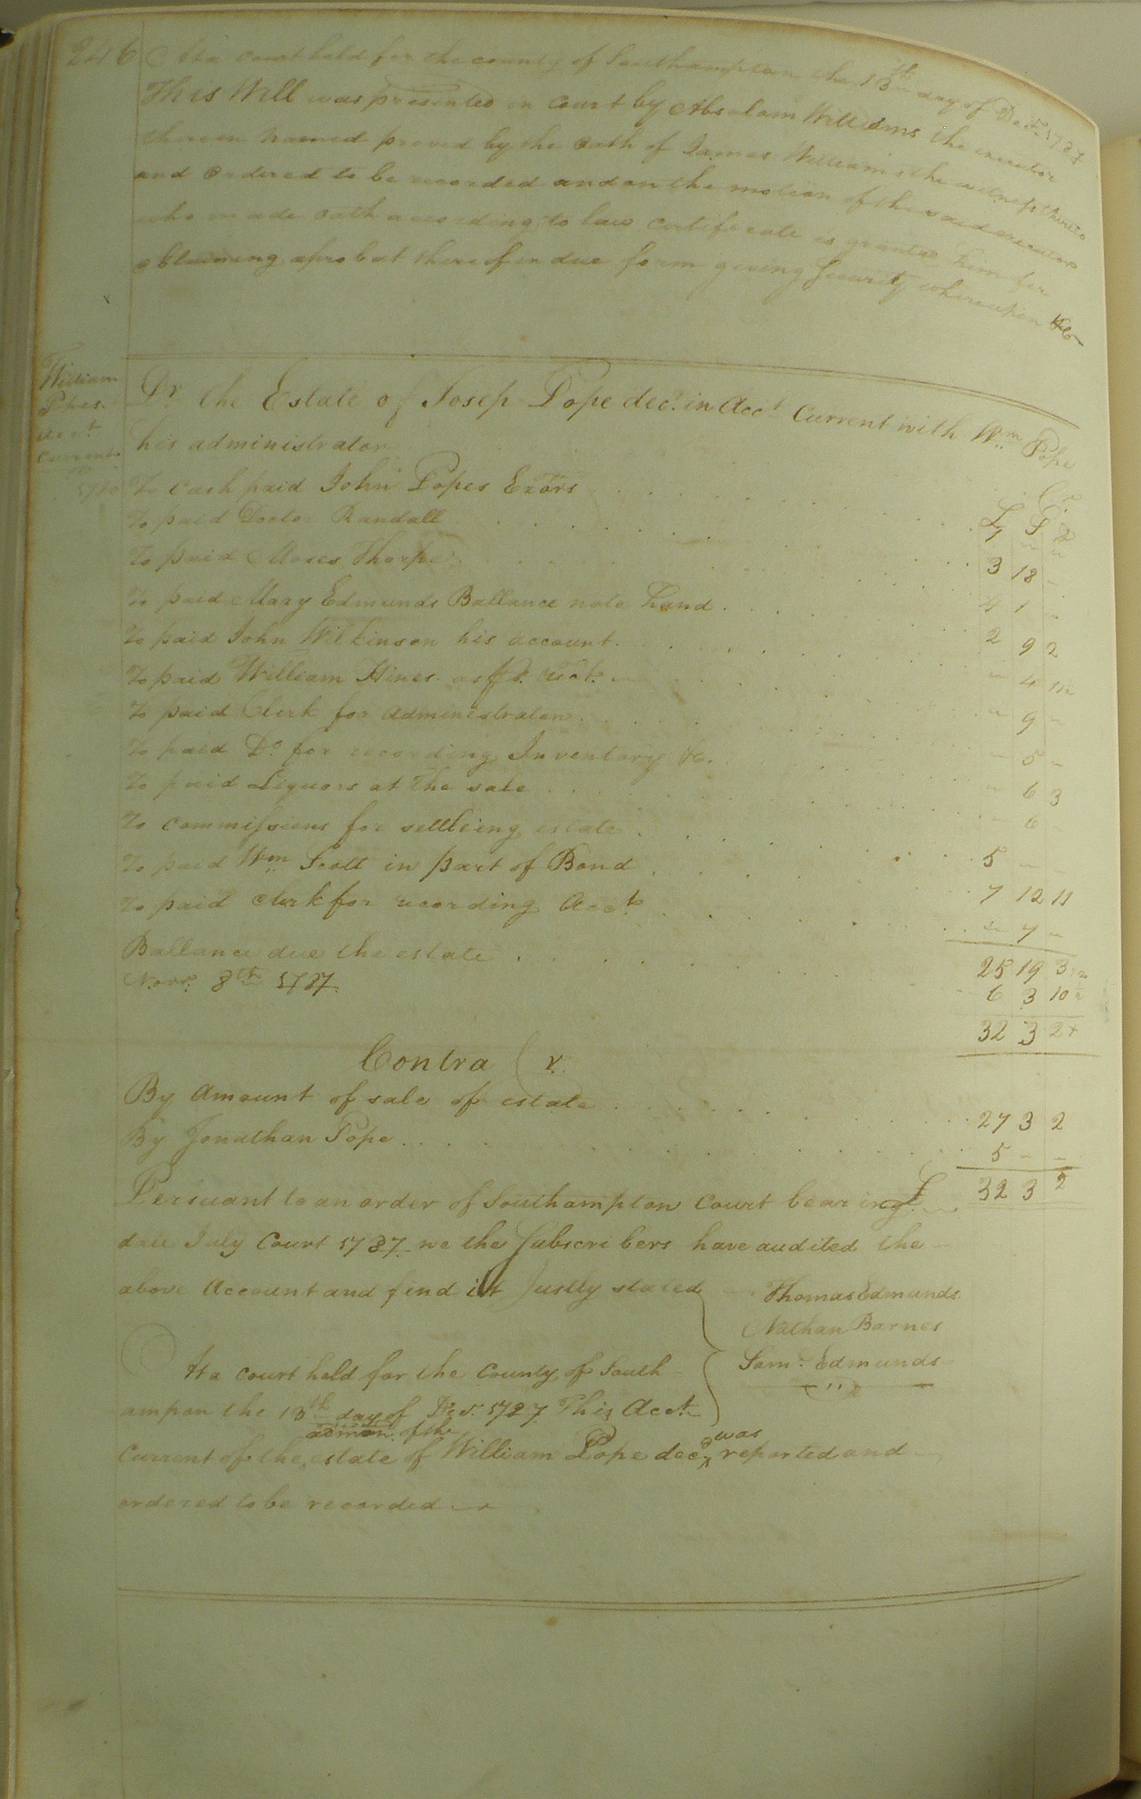 246 At a court held for the county of Southampton the 13th day of Decr. 1787
This Will was presented in court by Absalom Williams the executor
therein named proved by the oath of James Williams the witness thereto
and ordered to be recorded and on the motion of the said executor
who made oath according to law certificate is granted him for
obtaining a probat thereof in due form giving security whereupon &c
William
Popes
acct.
current
Dr. the Estate of Josep Pope decd. in Acct. Current with Wm Pope
his administrator Cr.
£ S D
To cash paid John Popes Exors
To paid Doctor Randall 3 18 -
To paid Moses Thorpe 4 1 -
To paid Mary Edmunds Ballance note hand 2 9 2
To paid John Wilkinson his account - 4 11
To paid William Hines - 9 -
To paid Clerk for administration - 5 -
To paid Do for recording Inventory &c. - 6 3
To paid Liquors at the sale - 6 -
To commissions for settleing estate 5 - -
To paid Wm Scott in part of Bond 7 12 11
To paid clerk for recording Acct. - 7 -
25 19 3
Ballance due the estate 6 3 10
Novr. 8th 1787 32 3 2
Contra Cr.
By Amount of sale of estate 27 3 2
By Jonathan Pope 5 - -
£ 32 3 2
Persuant to an order of Southampton Court bearing
date July Court 1787 we the Subscribers have audited the
above Account and find it Justly stated
Thomas Edmunds
Nathan Barnes
Saml. Edmunds
At a court held for the County of South
ampon the 13th day of Decr. 1787 This Acct.
admon. of the
was
current of the estate of William Pope decd reported and
ordered to be recorded